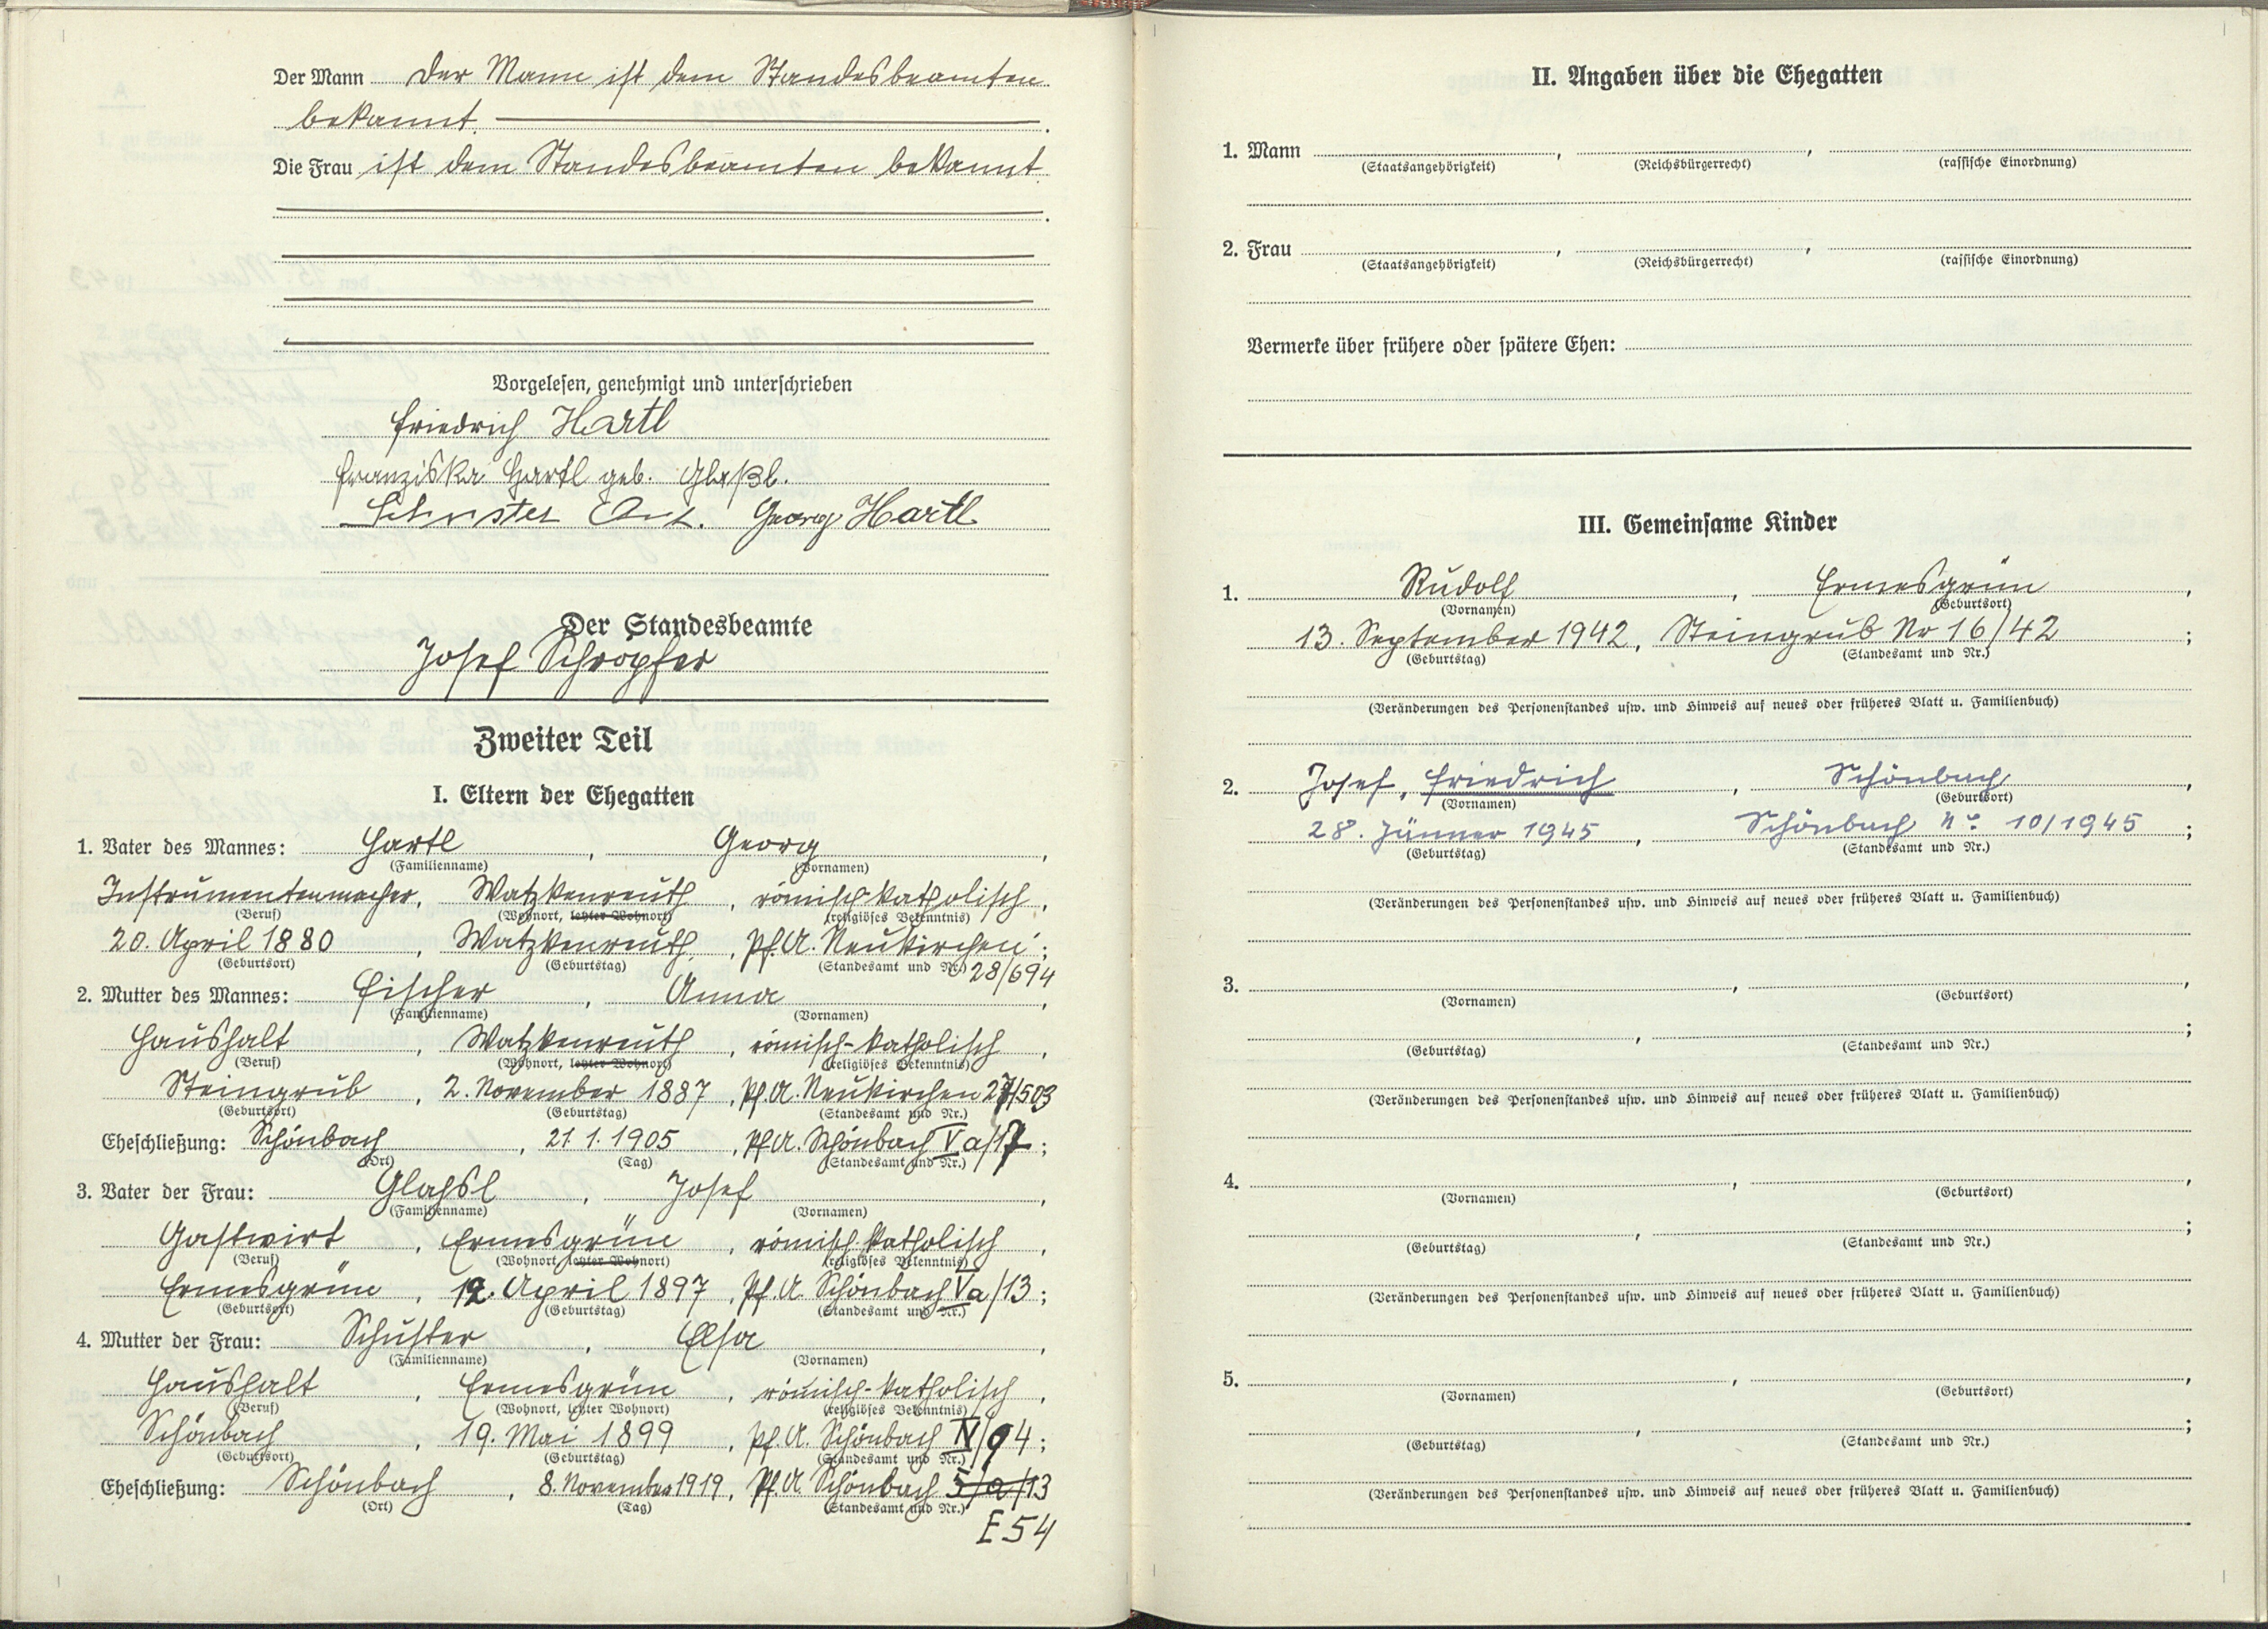 Der Mann Der Mann ist dem Standesbeamten
bekannt.
Die Frau ist dem Standesbeamten bekannt
Vorgelesen, genehmigt und unterschrieben
Friedrich Hartl
Franziska Hartl geb. Glaßl.
Schuster Georg Hartl
Der Standesbeamte
Josef Schropfer
Zweiter Teil
I. Eltern der Ehegatten
1. Vater des Mannes: Hartl, Georg,
(Familienname) (Vornamen)
Instrumentenmacher, Watzkenreuth, römisch-katholisch,
(Beruf) (Wohnort, letzter Wohnort) (religiöses Bekenntnis)
20. April 1880, Watzkenreuth, Pf.A. Neukirchen;
(Geburtsort) (Geburtstag) (Standesamt und Nr.) 28/694
2. Mutter des Mannes: Fischer, Anna,
(Familienname) (Vornamen)
Haushalt, Watzkenreuth, römisch-katholisch,
(Beruf) (Wohnort, letzter Wohnort) (religiöses Bekenntnis)
Steingrub, 2. November 1887, Pf.A. Neukirchen 27/503
(Geburtsort) (Geburtstag) (Standesamt und Nr.)
Eheschließung: Schönbach, 21.1.1905, Pf.A. Schönbach V a/17;
(Ort) (Tag) (Standesamt und Nr.)
3. Vater der Frau: Glassl, Josef,
(Familienname) (Vornamen)
Gastwirt, Ermesgrün, römisch-katholisch,
(Beruf) (Wohnort, letzter Wohnort) (religiöses Bekenntnis)
Ermesgrün, 12. April 1897, Pf.A. Schönbach Va/13;
(Geburtsort) (Geburtstag) (Standesamt und Nr.)
4. Mutter der Frau: Schuster, Elsa,
(Familienname) (Vornamen)
Haushalt, Ermesgrün, römisch-katholisch,
(Beruf) (Wohnort, letzter Wohnort) (religiöses Bekenntnis)
Schönbach, 19. Mai 1899, Pf.A. Schönbach IV/94;
(Geburtsort) (Geburtstag) (Standesamt und Nr.)
Eheschließung: Schönbach, 8. November 1919, Pf.A. Schönbach 5/a/13
(Ort) (Tag) (Standesamt und Nr.)
E 54
II. Angaben über die Ehegatten
1. Mann , ,
(Staatsangehörigkeit) (Reichsbürgerrecht) (rassische Einordnung)
2. Frau , ,
(Staatsangehörigkeit) (Reichsbürgerrecht) (rassische Einordnung)
Vermerke über frühere oder spätere Ehen:
III. Gemeinsame Kinder
1. Rudolf, Ermesgrün,
(Vornamen) (Geburtsort)
13. September 1942, Steingrub No 16/42;
(Geburtstag) (Standesamt und Nr.)
(Veränderungen des Personenstandes usw. und Hinweis auf neues oder früheres Blatt u. Familienbuch)
2. Josef, Friedrich, Schönbach,
(Vornamen) (Geburtsort)
28. Jänner 1945, Schönbach No 10/1945;
(Geburtstag) (Standesamt und Nr.)
(Veränderungen des Personenstandes usw. und Hinweis auf neues oder früheres Blatt u. Familienbuch)
3. , ,
(Vornamen) (Geburtsort)
, ;
(Geburtstag) (Standesamt und Nr.)
(Veränderungen des Personenstandes usw. und Hinweis auf neues oder früheres Blatt u. Familienbuch)
4. , ,
(Vornamen) (Geburtsort)
, ;
(Geburtstag) (Standesamt und Nr.)
(Veränderungen des Personenstandes usw. und Hinweis auf neues oder früheres Blatt u. Familienbuch)
5. , ,
(Vornamen) (Geburtsort)
, ;
(Geburtstag) (Standesamt und Nr.)
(Veränderungen des Personenstandes usw. und Hinweis auf neues oder früheres Blatt u. Familienbuch)